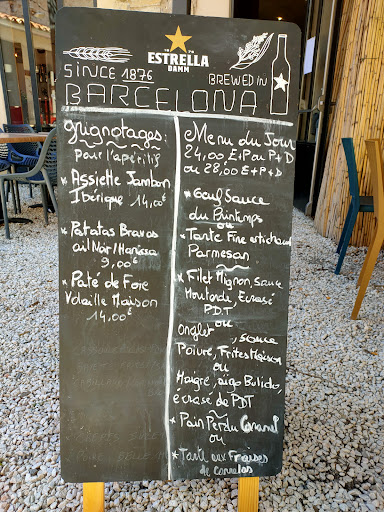 ESTRELLA
DAMM
SINCE 1876
BREWED IN
BARCELONA
Grignotages:
pour l'apéritif
* Assiette Jambon
Ibérique 14,00€
* Patatas Bravas
ail Noir/Harissa
9,00€
* Paté de Foie
Volaille Maison
14,00€
Menu du Jour
24,00, E+P ou P+D
ou 28,00 E+P+D
* Oeuf Sauce
du Printemps
ou
* Tarte Fine artichaud
Parmesan
* Filet Mignon, sauce
Moutarde, Ecrasé
PDT
ou
Onglet, sauce
Poivre, Frites Maison
ou
Maigre, aigo Bulido,
écrasé de PDT
* Pain Perdu Caramel
ou
* Tarte aux Fraises
de Carpentras